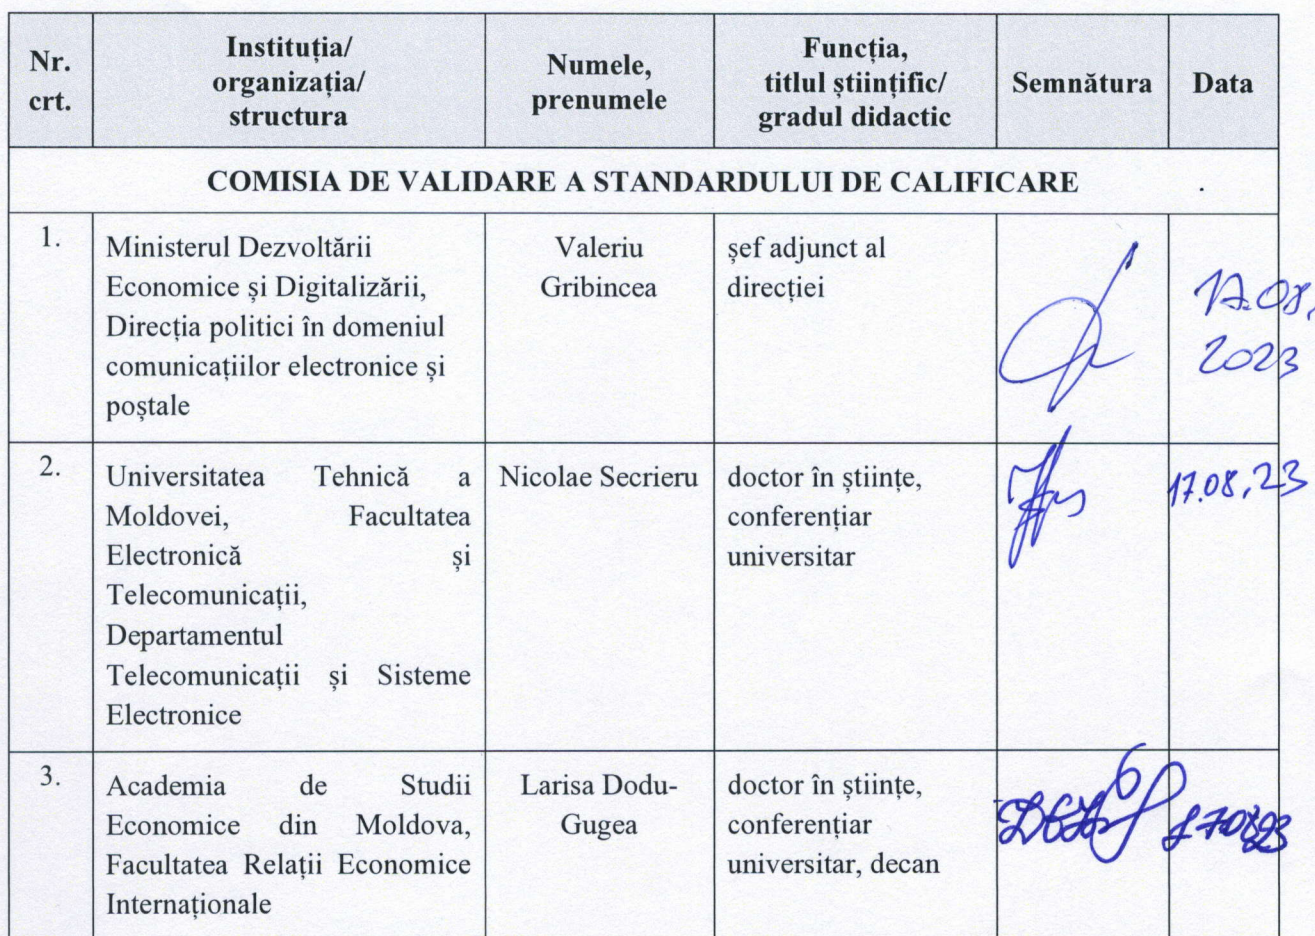 Nr.
crt.
Instituția/
organizația/
structura
Numele,
prenumele
Funcția,
titlul științific/
gradul didactic
Semnătura
Data
COMISIA DE VALIDARE A STANDARDULUI DE CALIFICARE
1.
Ministerul Dezvoltării
Economice și Digitalizării,
Direcția politici în domeniul
comunicațiilor electronice și
poștale
Valeriu
Gribincea
șef adjunct al
direcției
17.08.
2023
2.
Universitatea Tehnică a
Moldovei, Facultatea
Electronică și
Telecomunicații,
Departamentul
Telecomunicații și Sisteme
Electronice
Nicolae Secrieru
doctor în științe,
conferențiar
universitar
17.08.23
3.
Academia de Studii
Economice din Moldova,
Facultatea Relații Economice
Internaționale
Larisa Dodu-
Gugea
doctor în științe,
conferențiar
universitar, decan